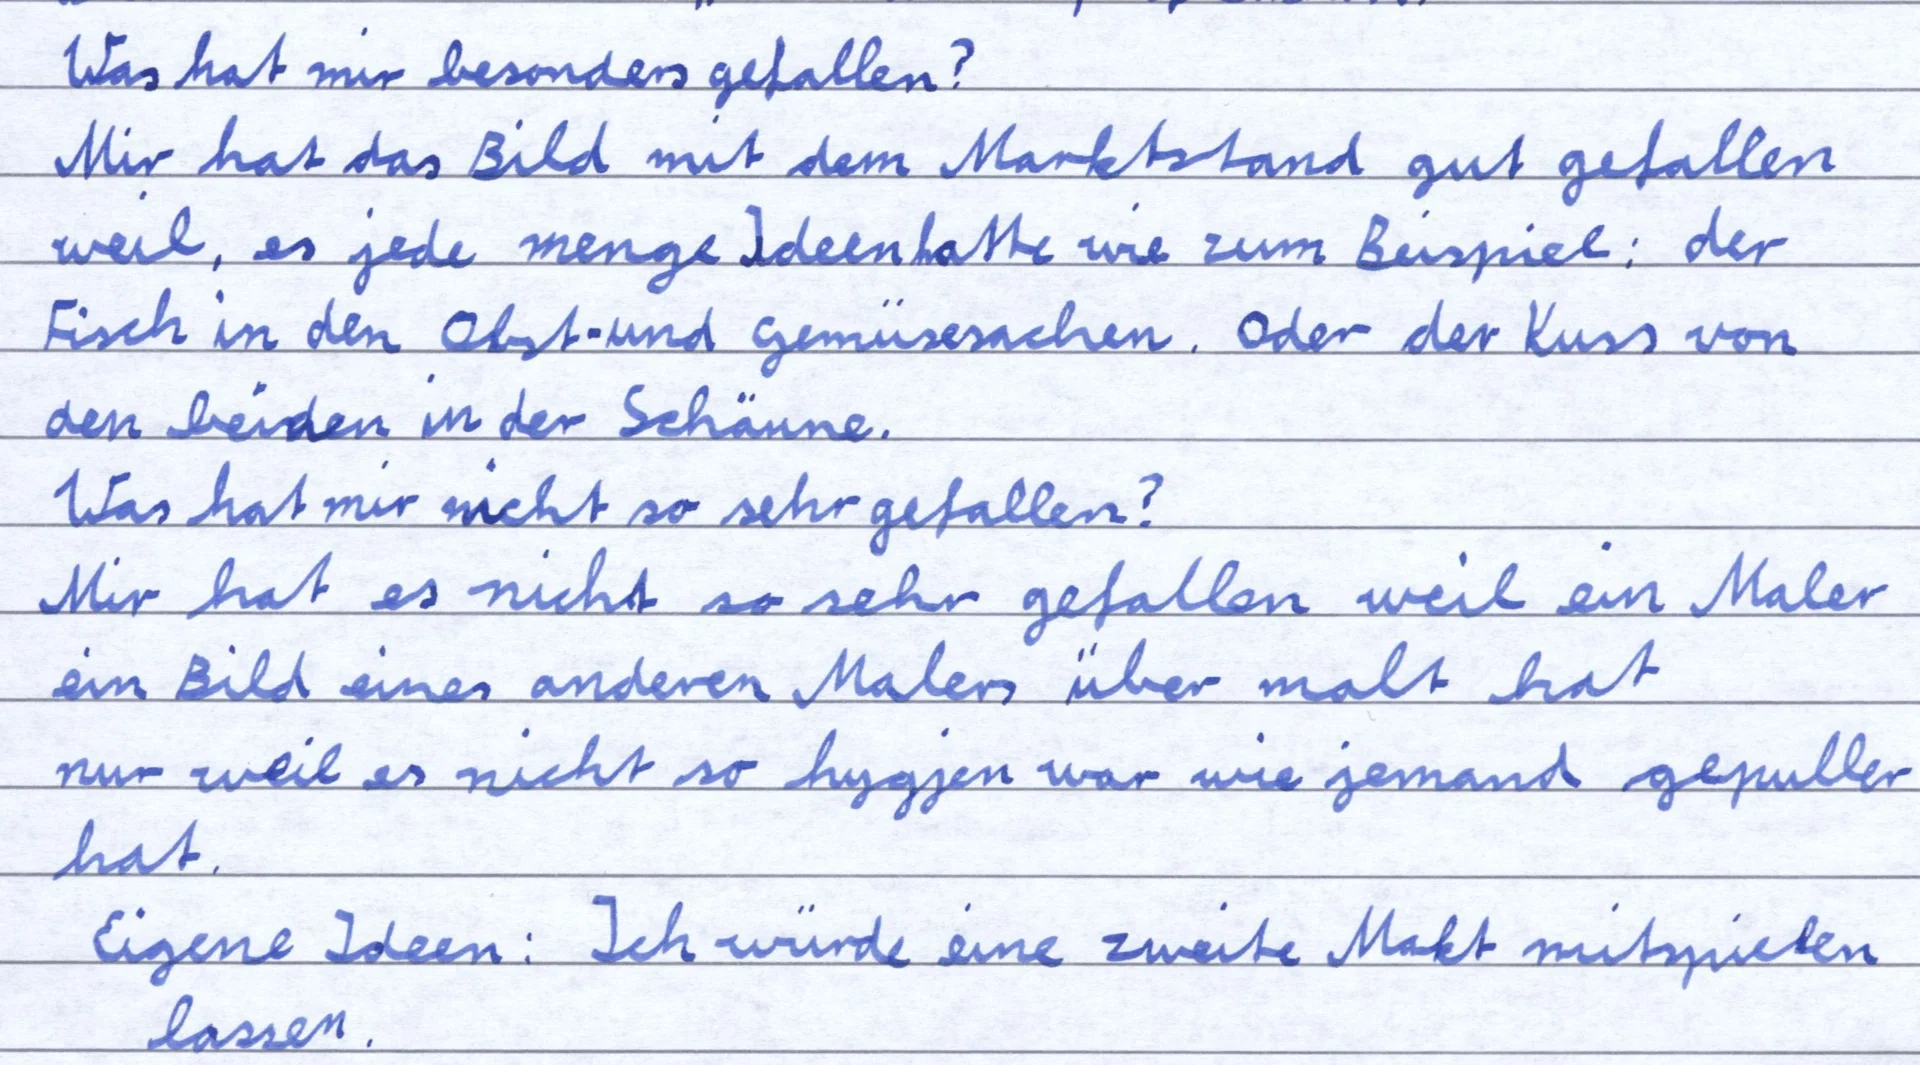 Was hat mir besonders gefallen?
Mir hat das Bild mit dem Marktstand gut gefallen
weil, es jede menge Ideen hatte wie zum Beispiel: der
Fisch in den Obst-und gemüsesachen. Oder der Kuss von
den beiden in der Schäune.
Was hat mir nicht so sehr gefallen?
Mir hat es nicht so sehr gefallen weil ein Maler
ein Bild eines anderen Malers über malt hat
nur weil es nicht so hygjen war wie jemand gepuller
hat.
Eigene Ideen: Ich würde eine zweite Makt mitspielen
lassen.